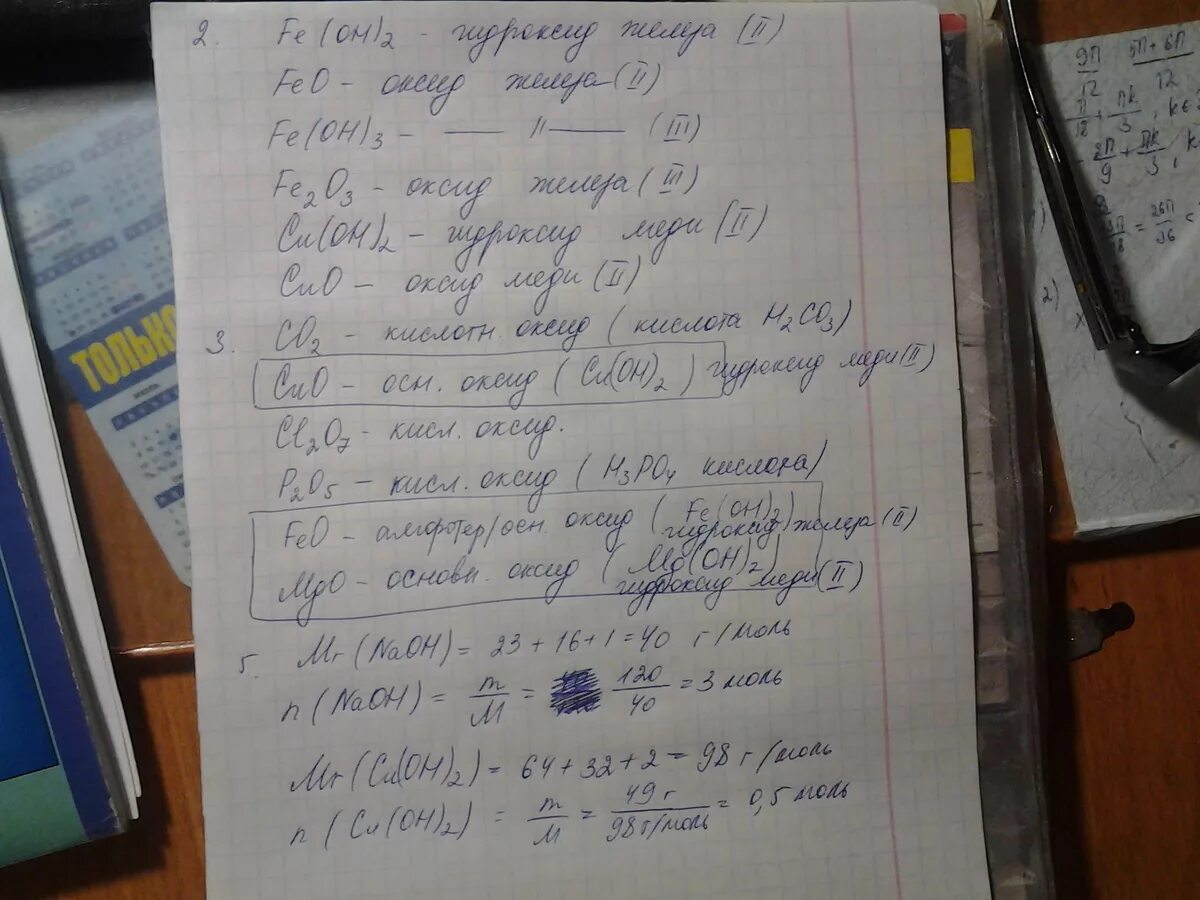 2. Fe(OH)2 - гидроксид железа (II)
FeO - оксид железа (II)
Fe(OH)3 - —— 11 —— (III)
Fe2O3 - оксид железа (III)
Cu(OH)2 - гидроксид меди (II)
CuO - оксид меди (II)
3. CO2 - кислотн. оксид (кислота H2CO3)
CuO - осн. оксид (Cu(OH)2) гидроксид меди (II)
Cl2O7 - кисл. оксид.
P2O5 - кисл. оксид (H3PO4 кислота)
FeO - амфотер/осн. оксид (Fe(OH)2) гидроксид железа (II)
MgO - основн. оксид (Mg(OH)2) гидроксид меди (II)
5. Mr(NaOH) = 23 + 16 + 1 = 40 г/моль
n(NaOH) = m/M = 120/40 = 3 моль
Mr(Cu(OH)2) = 64 + 32 + 2 = 98 г/моль
n(Cu(OH)2) = m/M = 49 г/98 г/моль = 0,5 моль
ТОЛЬКО
9П/12 5П+6П/12
П/18 + Пk/3, k∈
2П/9 + Пk/3, k
= 26П/36
2)